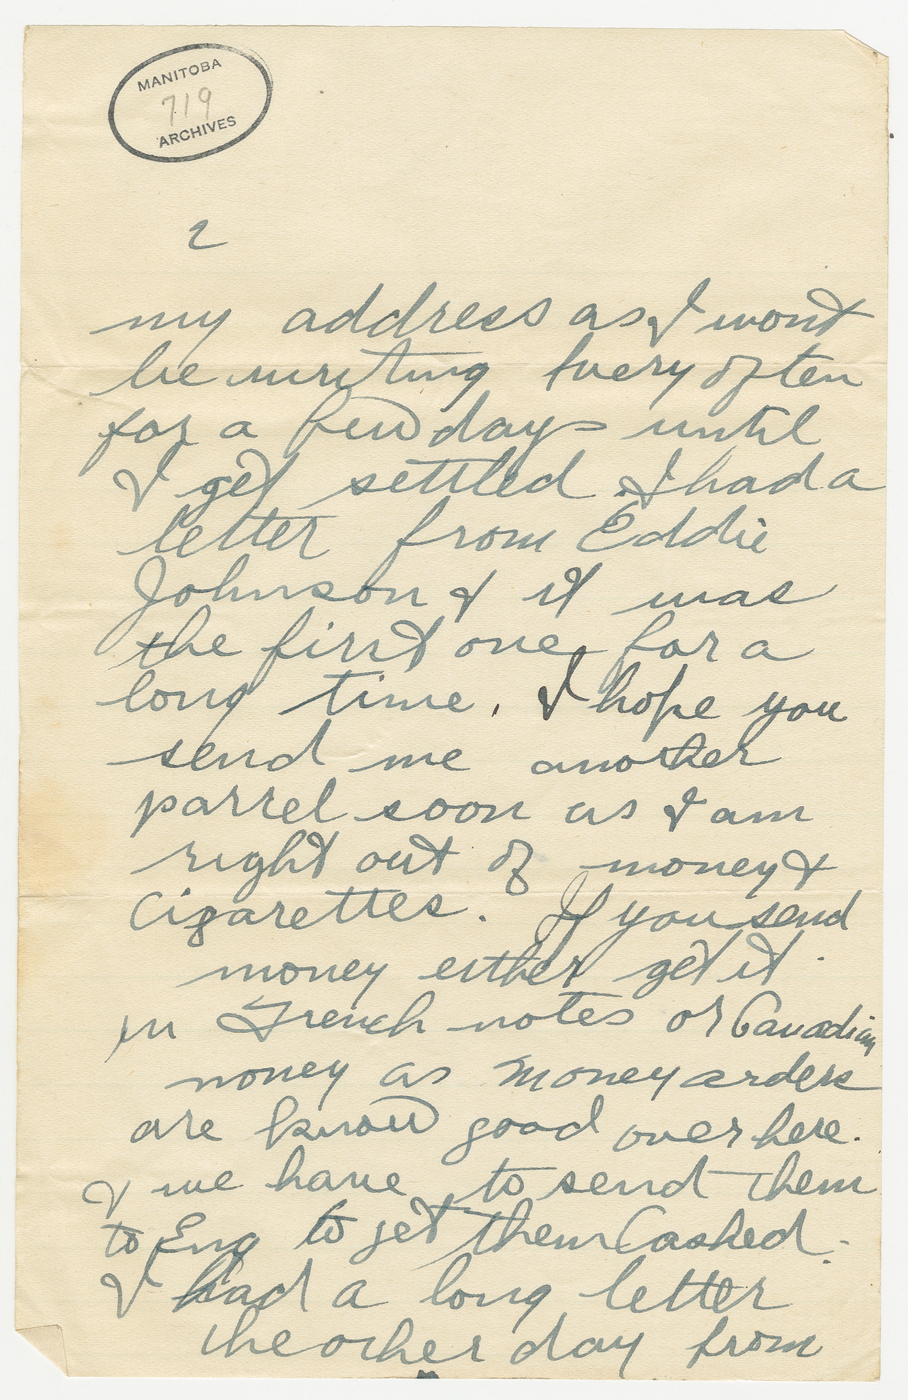 MANITOBA
719
ARCHIVES
2
my address as I wont
be writing very often
for a few days until
I get settled. I had a
letter from Eddie
Johnson & it was
the first one for a
long time. I hope you
send me another
parrel soon as I am
right out of money &
Cigarettes. If you send
money either get it
in French notes or Canadian
money as money orders
are know good over here.
& we have to send them
to Eng to get them Cashed.
I had a long letter
the other day from